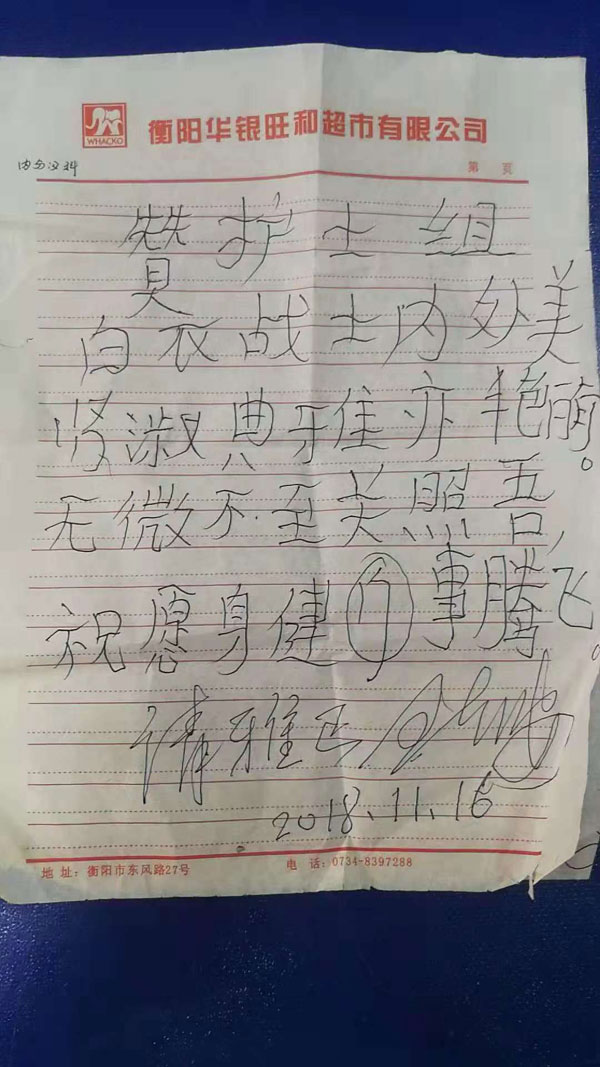 WHACKO
衡阳华银旺和超市有限公司
第 页
赞护士组
白衣战士内外美
贤淑典雅亦艳丽。
无微不至关照吾,
祝愿身健 事腾飞。
请雅正
2018.11.16
地 址：衡阳市东风路27号
电 话：0734-8397288